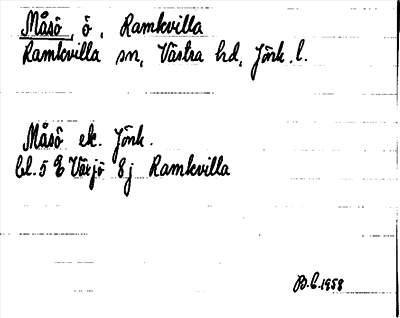 Måsö, ö, Ramkvilla
Ramkvilla sn, Västra hd, Jönk. l.
Måsö ek. Jönk.
bl. 5 E Växjö 8j Ramkvilla
B.E. 1958